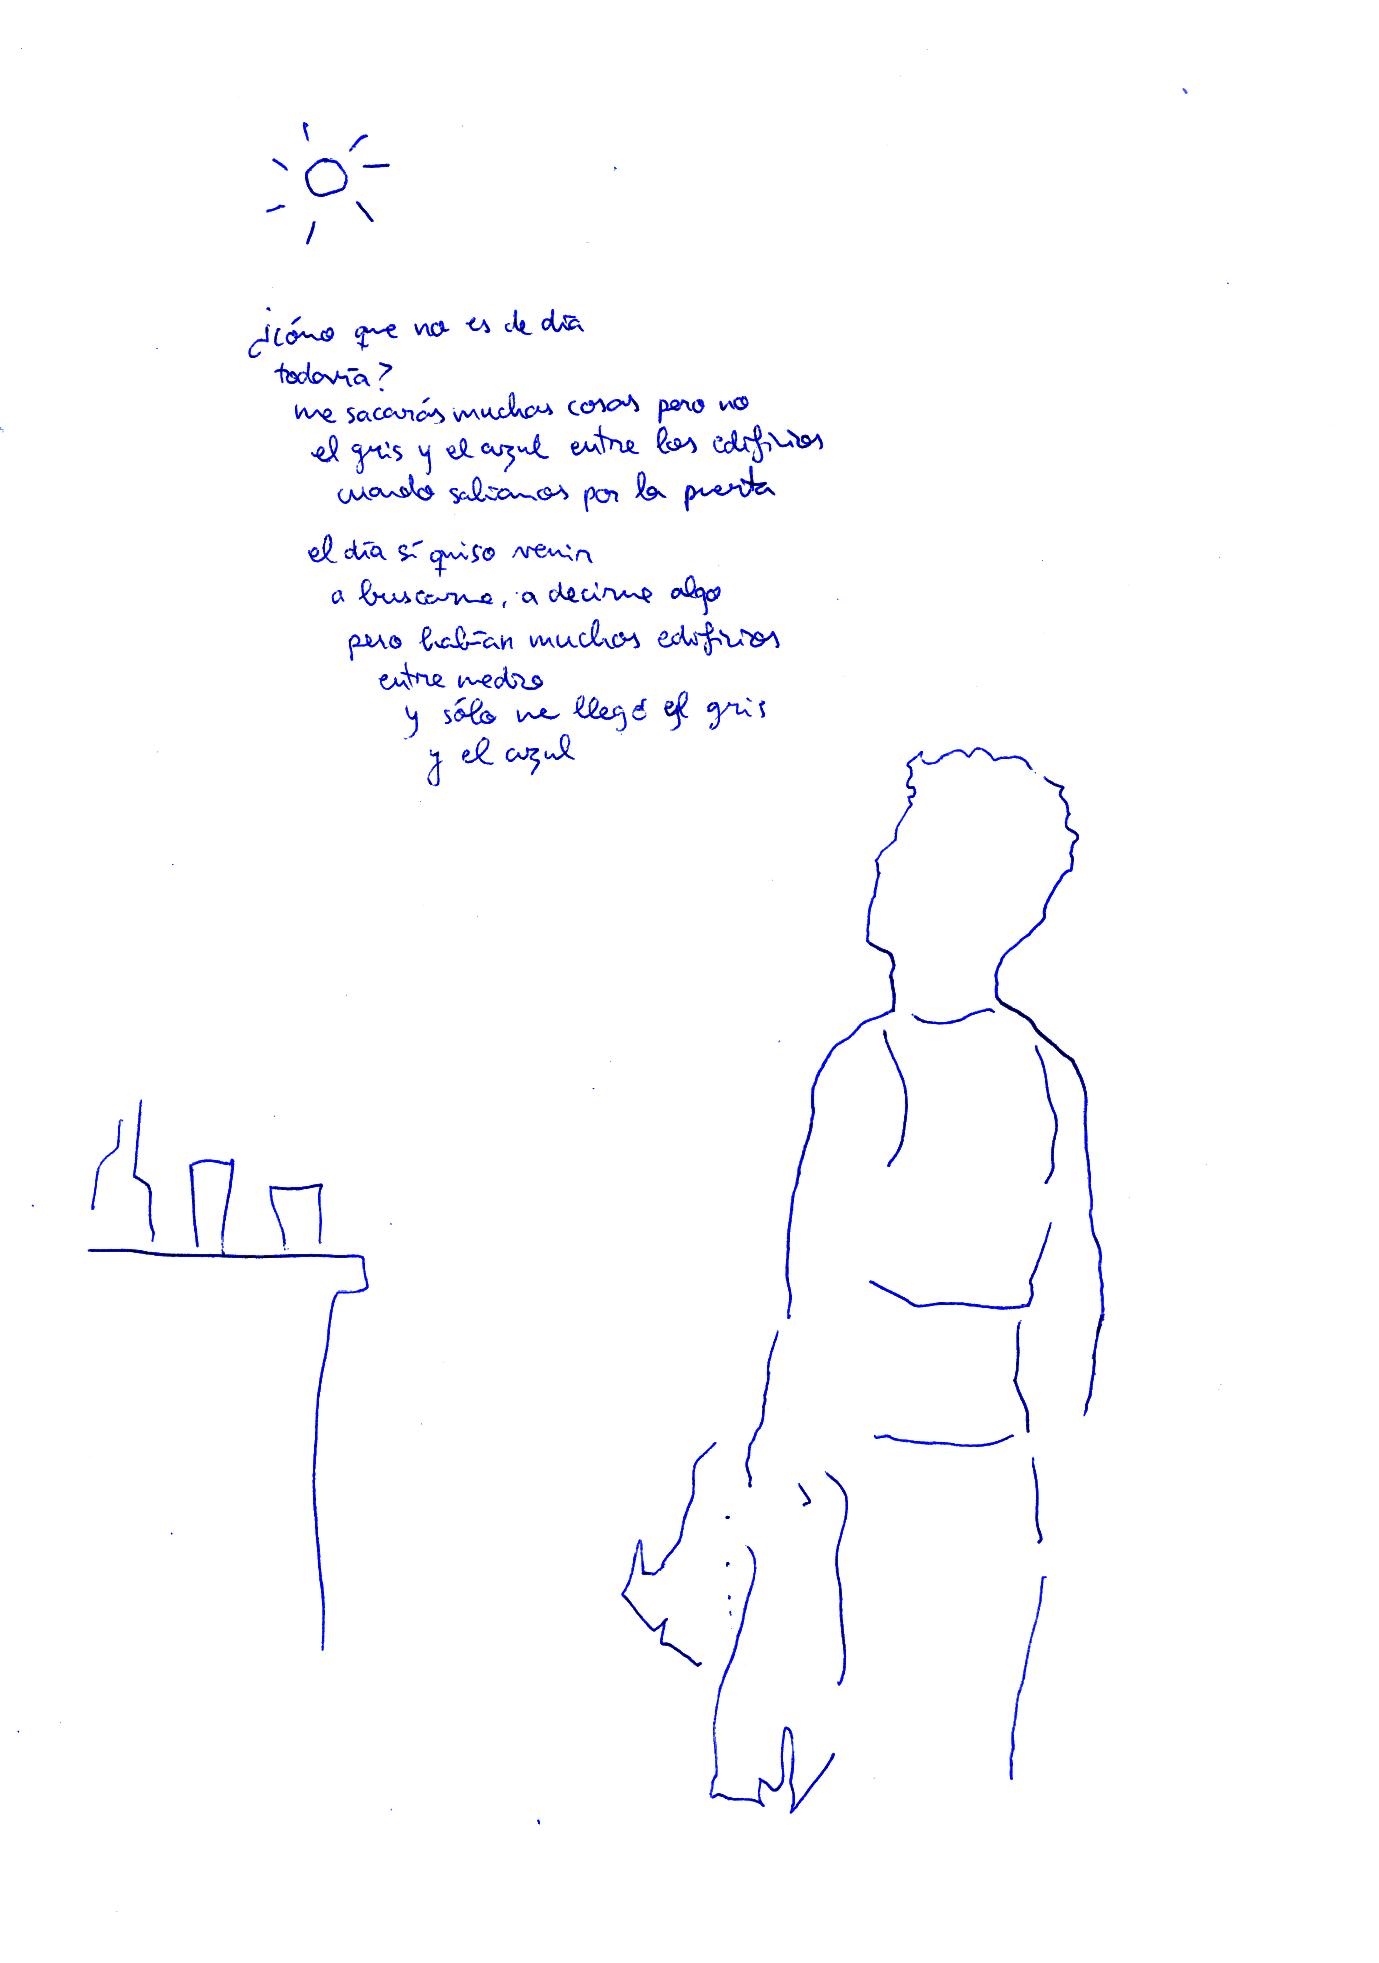 ¿cómo que no es de día
todavía?
me sacarás muchas cosas pero no
el gris y el azul entre los edificios
cuando salíamos por la puerta
el día sí quiso venir
a buscarme, a decirme algo
pero habían muchos edificios
entre medio
y sólo me llegó el gris
y el azul